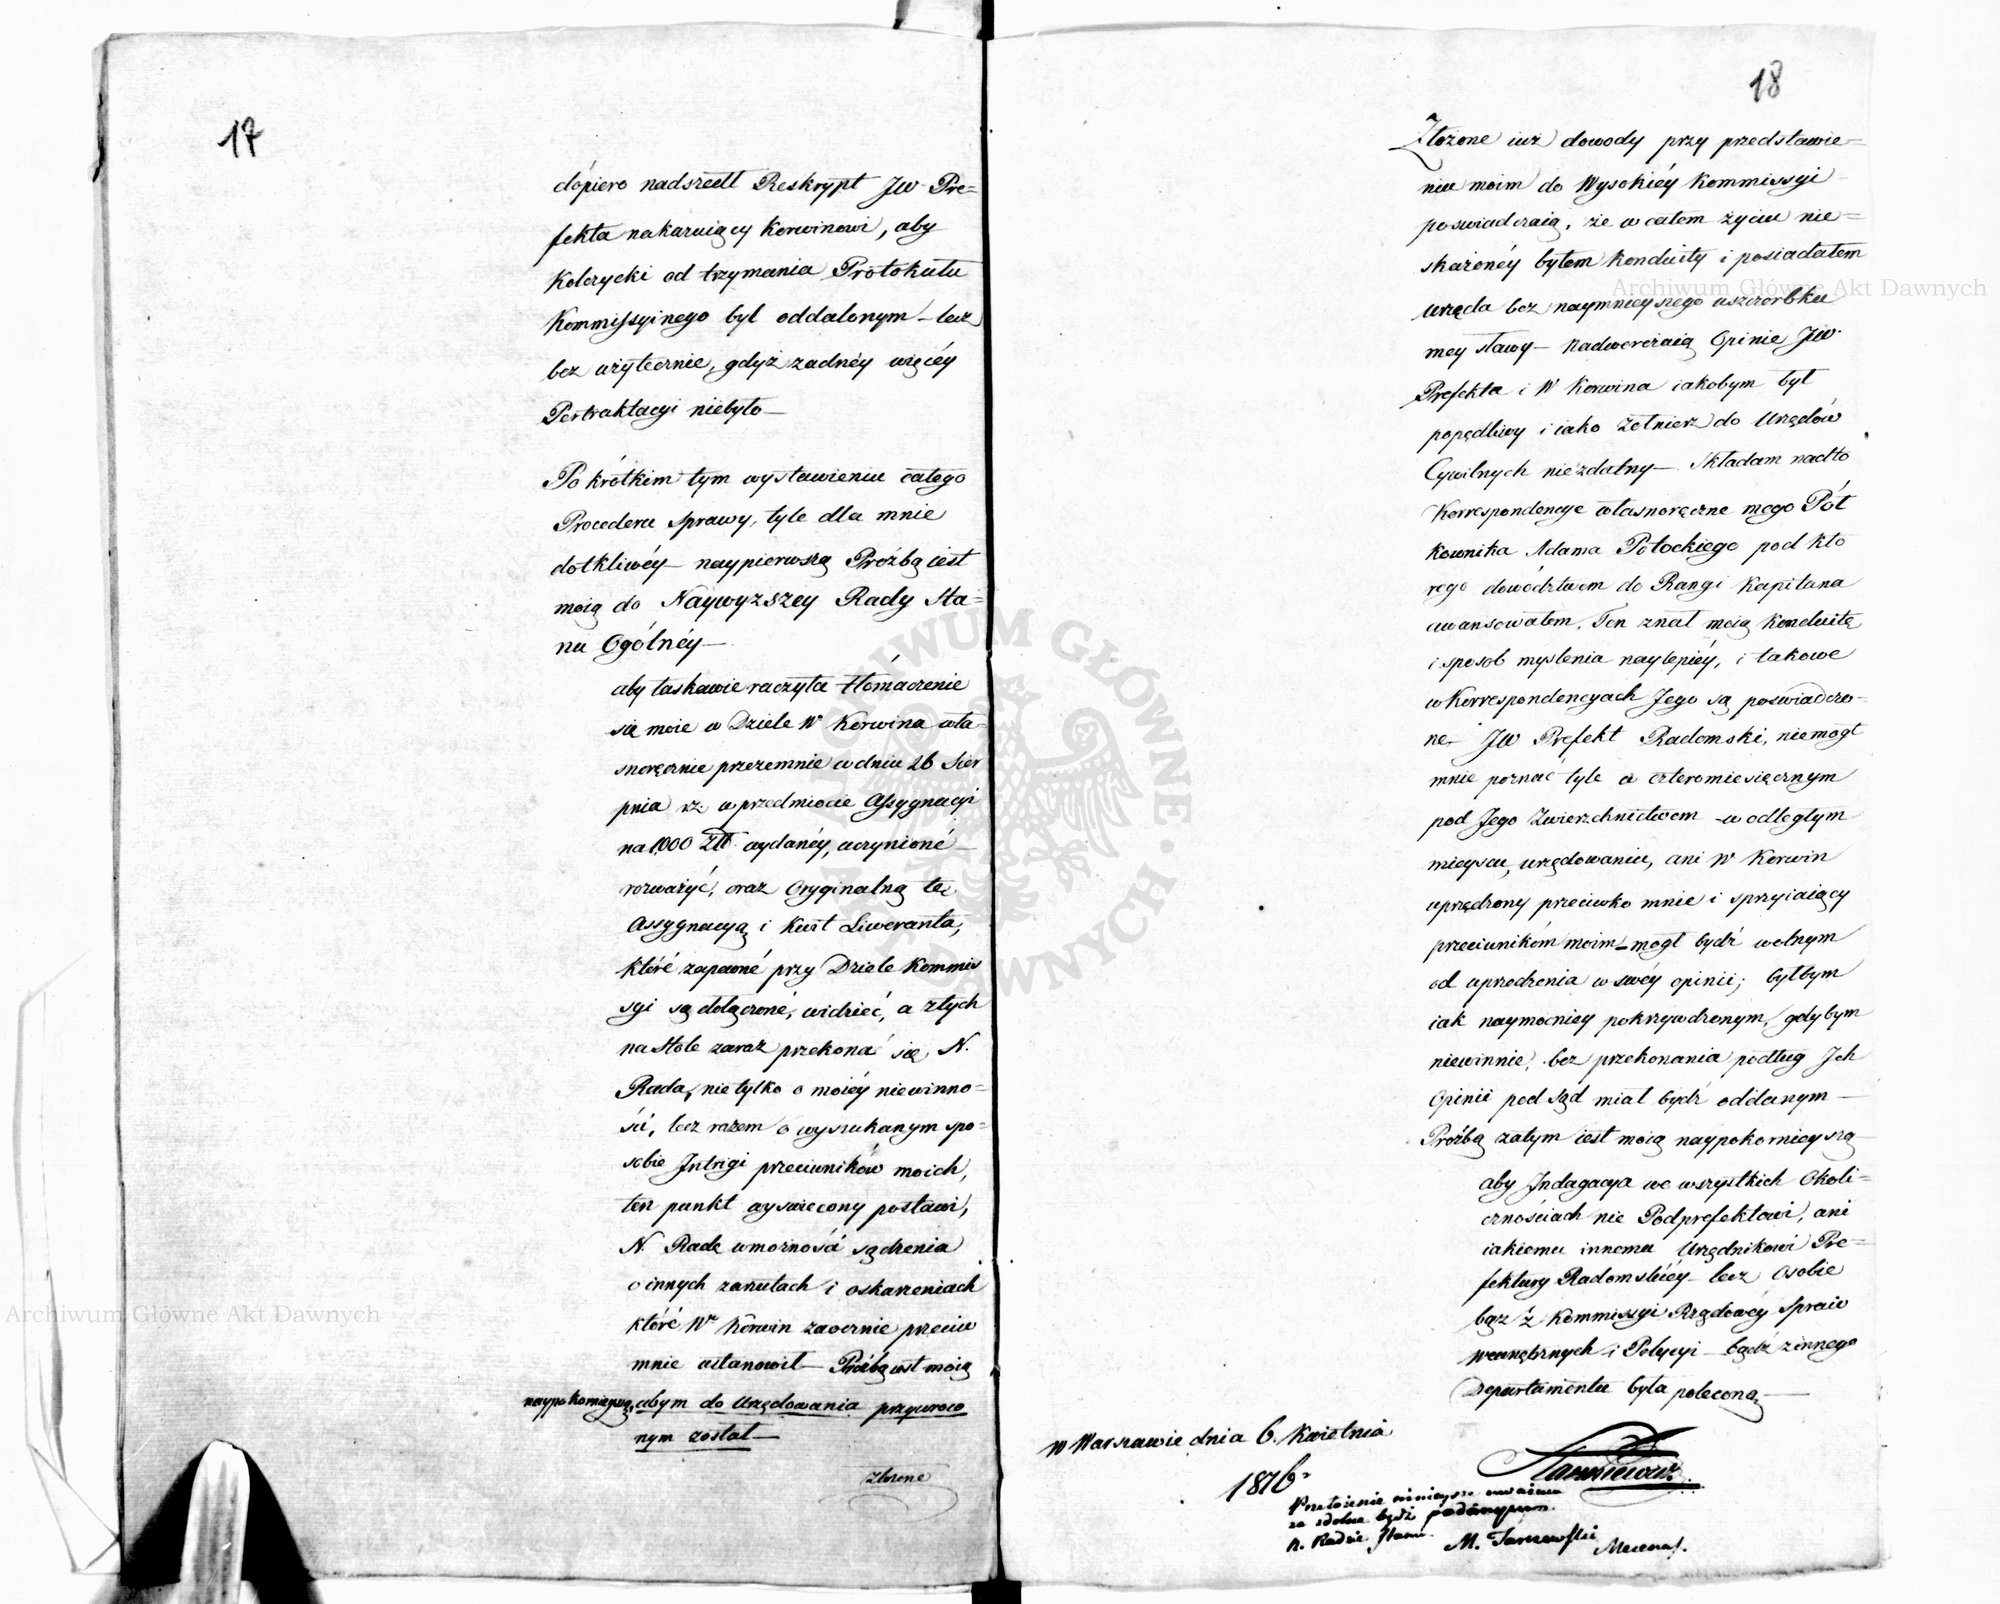 17
dópiero nadszedł Reskrypt JW Pre=
fekta nakazuiący Korwinowi, aby
Kolczycki od trzymania Protokułu
Kommissyinego był oddalonym – lecz
bez użytecznie, gdyż zadnéy więcéy
Pertraktacyi niebyło –
Po krótkim tym wystawieniu całego
Procederu sprawy, tyle dla mnie
dotkliwéy – naypierwszą Proźbą iest
moią do Naywyzszey Rady Sta=
nu Ogólnéy –
aby łaskawie raczyła tłómaczenie
się moie w Dziele W Korwina wła-
snoręcznie przezemnie w dniu 26 Sier
pnia rz: w przedmiocie Assygnacyi
na 1000 Złł. wydanéy, uczynioné –
rozważyć, oraz Oryginalną tę
Assygnacyą i Kwit Liweranta,
któré zapewné przy Dziele Kommis
syi są dołączoné, widzieć, a z tych
na stole zaraz przekona się N.
Rada, nie tylko o moiéy niewinno=
ści, lecz razem o wyszukanym spo=
sobie Intrigi przeciwników moich,
ten punkt wyswiecony postawi,
N. Radę w możności sądzenia
o innych zarzutach i oskarzeniach
któré Wny Korwin zaocznie przeciw
mnie ustanowił – Proźbą iest moią
naypokornieyszą, abym do Urzędowania przywroco
nym został –
Złozone
18
Złozone iuż dowody przy przedstawie=
niu moim do Wysokiéy Kommissyi
poswiadczaią, że w całem życiu nie=
skażonéy byłem Konduity i posiadałem
urzęda bez naymnieyszego uszczerbku
mey sławy – Nadwerężaią Opinie JW
Prefekta i W Korwina iakobym był
popędliwy i iako Żołnierz do Urzędów
Cywilnych niezdatny – Składam nadto
Korrespondencye własnoręczne mego Puł
kownika Adama Potockiego pod któ
rego dowództwem do Rangi Kapitana
awansowałem. Ten znał moią Konduitę
i sposob myslenia naylepiéy, i takowe
w Korrespondencyach Jego są poswiadczo-
ne – JW Prefekt Radomski, niemogł
mnie poznać tyle w czteromiesięcznym
pod Jego Zwierzchnictwem – w odległym
mieyscu, urzędowaniu, ani W Korwin
uprzędzony przeciwko mnie i sprzyiaiący
przeciwnikóm moim – mógł bydź wolnym
od uprzedzenia w swéy opinii; byłbym
iak naymocniey pokrzywdzonym, gdybym
niewinnie, bez przekonania podług Ich
Opinii pod Sąd miał bydź oddanym –
Proźbą zatym iest moią naypokornieyszą
aby Indagacya we wszystkich Okoli=
cznościach nie Podprefektowi, ani
iakiemu innemu Urzędnikowi Pre=
fektury Radomskiéy – lecz Osobie
bądź z Kommissyi Rządowéy Spraw
wewnętrznych i Policyi – bądź z innego
Departamentu była poleconą –
w Warszawie dnia 6. Kwietnia
1816 r
Przełożenie ninieysze uważam
za zdolne bydź podanym
N. Radzie Stanu.
M. Tarczewski Mecenas.
Archiwum Główne Akt Dawnych
Archiwum Główne Akt Dawnych
ARCHIWUM GŁÓWNE AKT DAWNYCH